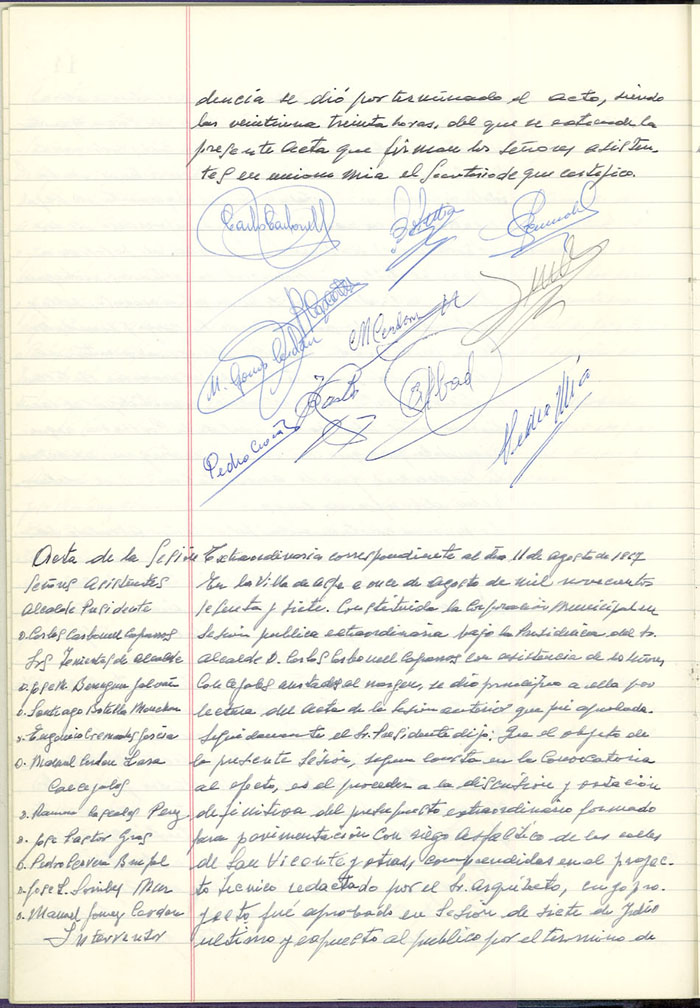 dencia se dió por terminado el acto, siendo
las veintiuna treinta horas, del que se extiende la
presente Acta que firman los Señores asisten
tes en union mia el Secretario de que certifico.
Carlos Carbonell
M. Gomez Cerdán
M Cerdan
Abad
Pedro
Acta de la Sesión Extraordinaria correspondiente al dia 11 de agosto de 1967
Señores Asistentes
Alcalde Presidente
D. Carlos Carbonell
Sres Tenientes de Alcalde
D. Jose M. Berenguer Galván
D. Santiago Botella
D. Eugenio Cremades Garcia
D. Manuel Cerdan
Concejales
D. Ramon Perez
D. Jose Pastor Gras
D. Pedro
D. Jose L.
D. Manuel Gomez Cerdan
Interventor
En la Villa de a once de Agosto de mil novecientos
sesenta y siete. Constituida la Corporación Municipal en
sesión publica extraordinaria bajo la Presidencia del Sr.
Alcalde D. Carlos Carbonell con asistencia de los Señores
Concejales anotados al margen, se dio principio a ella por
lectura del Acta de la Sesion anterior que fué aprobada.
Seguidamente el Sr. Presidente dijo: Que el objeto de
la presente Sesión, segun consta en la Convocatoria
al efecto, es el proceder a la discusion y votación
definitiva del presupuesto extraordinario formado
para pavimentación con riego Asfaltico de las calles
de San Vicente y otras, comprendidas en el proyec
to tecnico redactado por el Sr. Arquitecto, cuyo pro
yecto fué aprobado en Sesión de siete de Julio
ultimo y expuesto al publico por el termino de